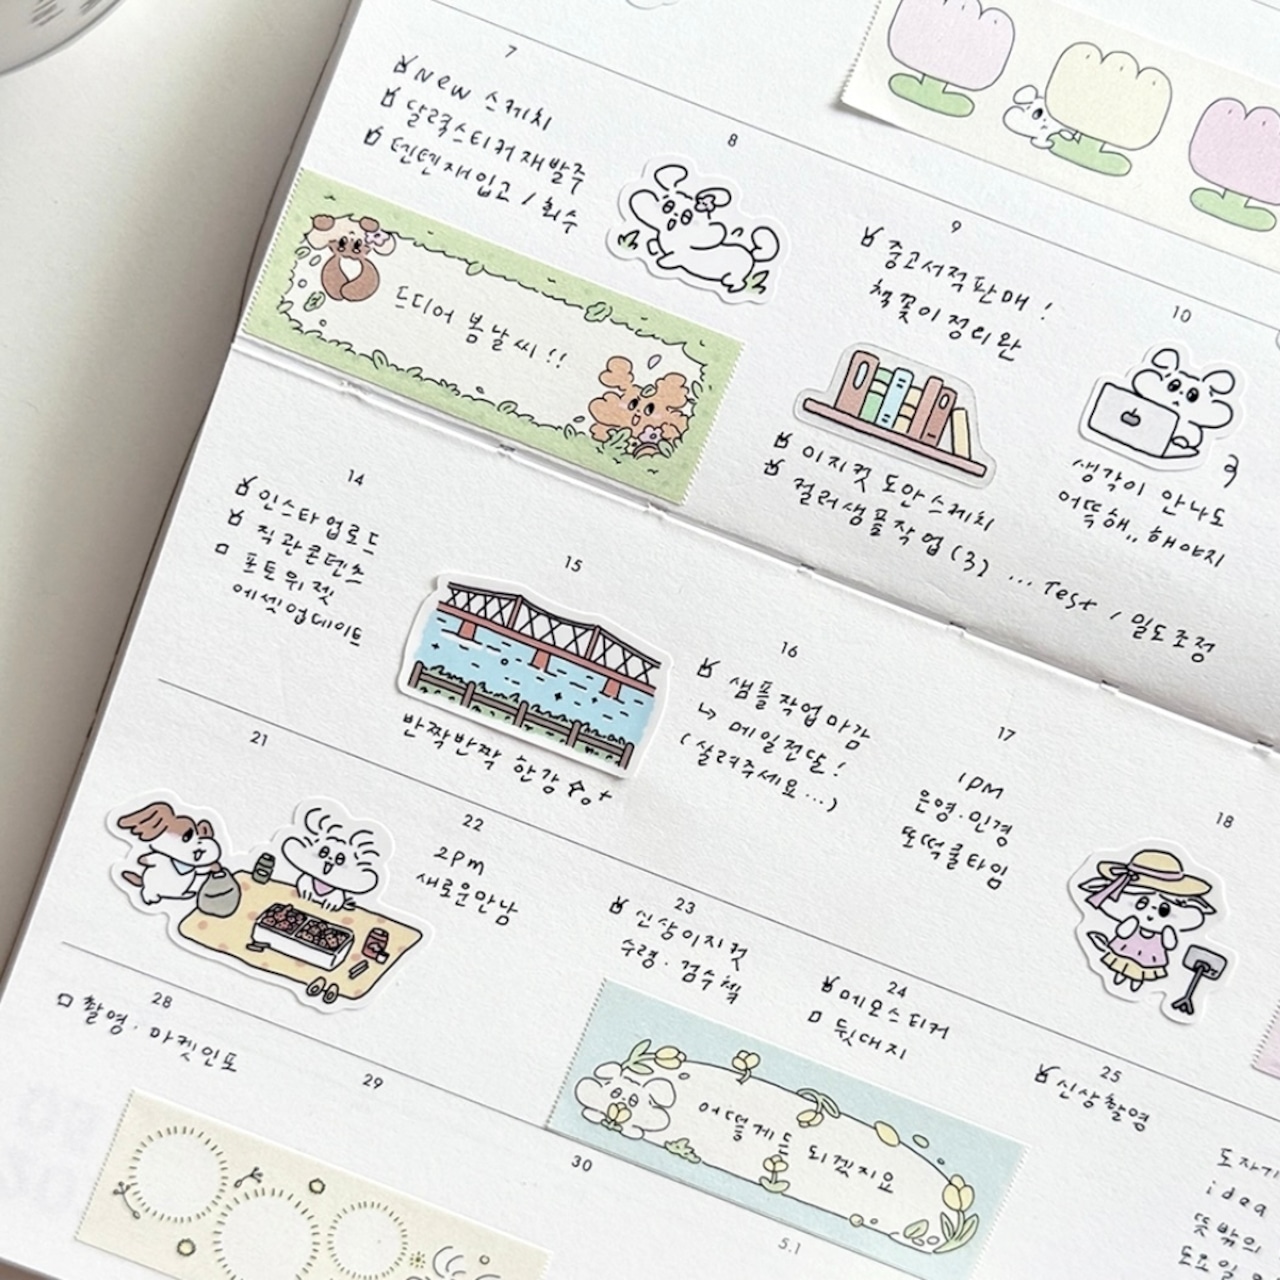 7
New 스케치
달력스티커재발주
텐텐재입고 / 회수
드디어 봄날씨!!
8
9
중고서적판매!
책꽂이정리완
이지컷 도안스케치
컬러샘플작업(3) ... Test / 밀도조정
10
생각이 안나도
어떡해,, 해야지
14
인스타업로드
직관콘텐츠
포토위젯
에셋업데이트
15
반짝반짝 한강
16
샘플작업마감
↳ 메일전달!
(살려주세요...)
17
1PM
은영·인경
또떡쿨타임
18
21
22
2pm
새로운만남
23
신상이지컷
수령·검수첵
24
메모스티커
뒷대지
어떻게든 되겠지요
25
신상촬영
도자기
idea
뜻밖의
28
촬영·마켓인포
29
30
5.1